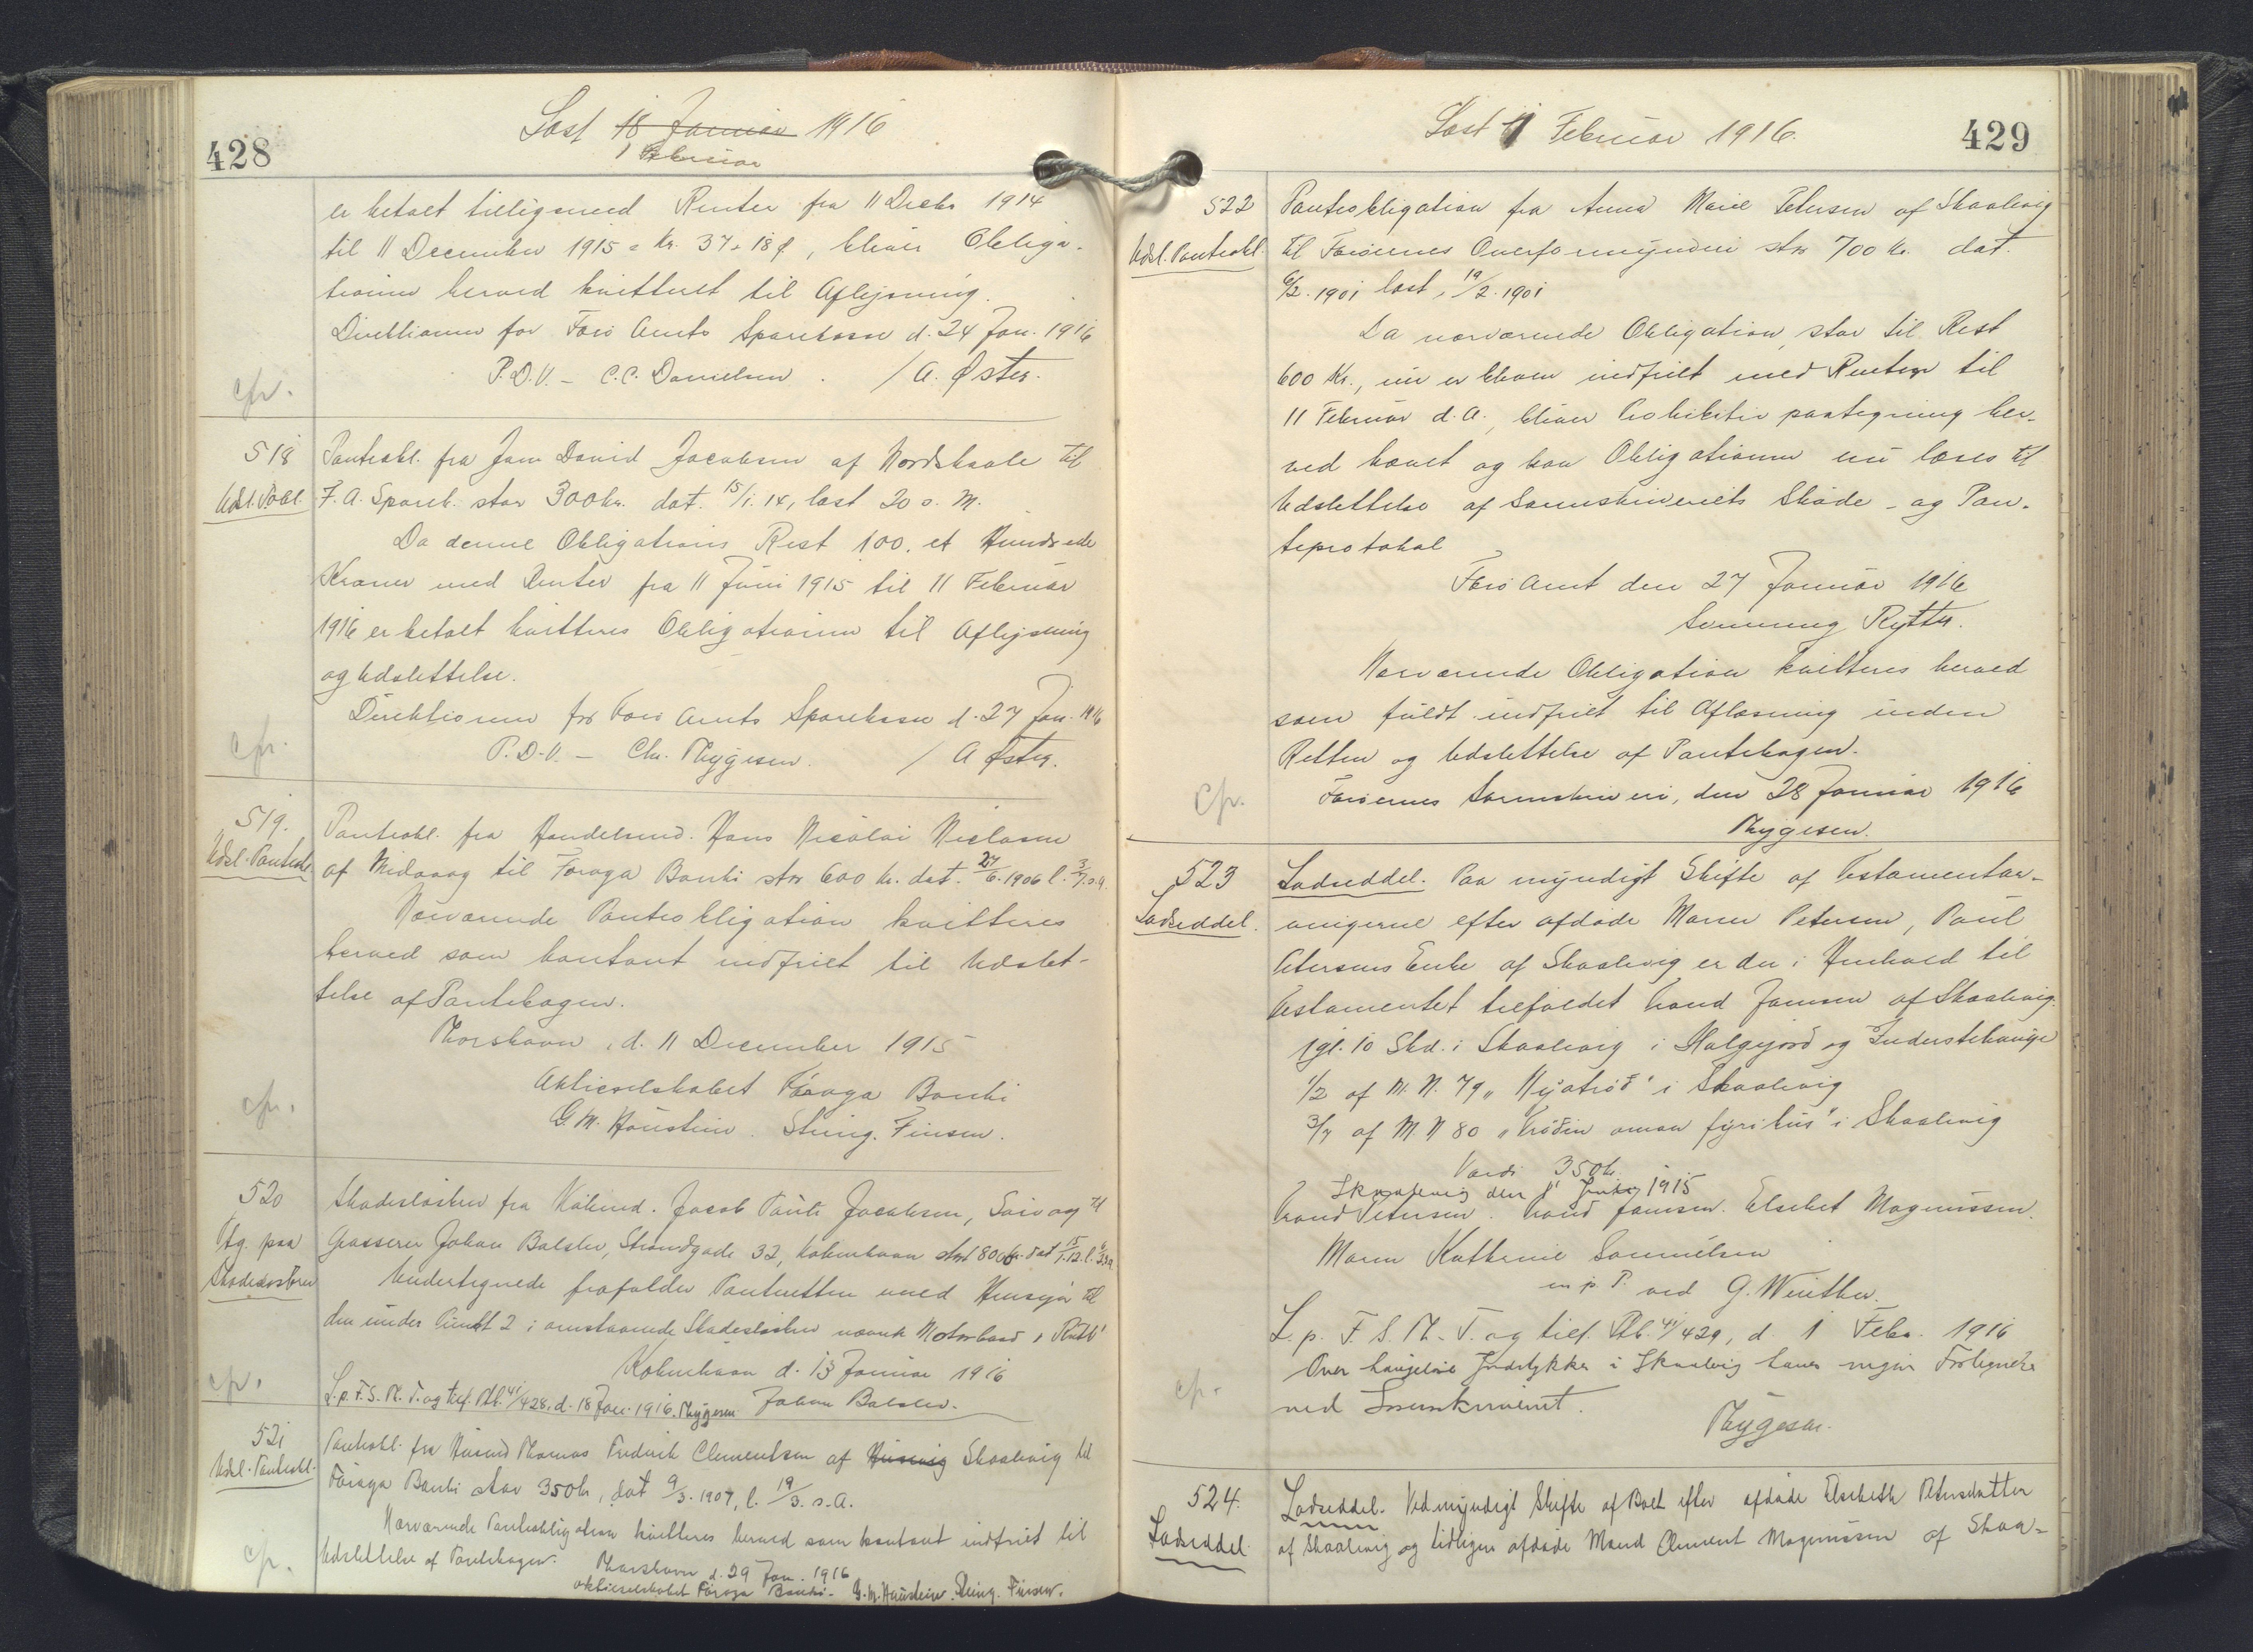 428
Læst 18 Januar 1916
1 Februar
er betalt tilligemed Renter fra 11 Decbr 1914
til 11 December 1915 = Kr. 37 - 18 Ø, bliver Obliga-
tionen herved kvitteret til Aflysning.
Direktionen for Færø Amts Sparekasse d. 24 Jan. 1916
P.D.V. - C.C. Danielsen. / A. Øster.
cfr.
518 Panteobl. fra Jens David Jacobsen af Nordskaale til
Udsl. P.obl. F. A. Spareb. stor 300 kr. dat. 15/1. 14, læst 20 s. M.
Da denne Obligations Rest 100. et Hundrede
Kroner med Renter fra 11 Juni 1915 til 11 Februar
1916 er betalt kvitteres Obligationen til Aflysning
og Udslettelse.
Direktionen for Færø Amts Sparekasse d. 27 Jan. 1916
cfr. P.D.V. - Chr. Thygesen. / A Øster.
519. Panteobl. fra Handelsmd. Hans Nicolai Niclasen
Udsl. Panteobl. af Midvaag til Føroya Banki stor 600 kr. dat. 27/6. 1906 l. 3/7. s.a.
Nærværende Panteobligation kvitteres
herved som kontant indfriet til Udslet-
telse af Pantebogen.
Thorshavn, d. 11 December 1915
Aktieselskabet Føroya Banki
cfr. G. M. Haustein. Steing. Finsen.
520 Skadesløsbrev fra Købmd. Jacob Pauli Jacobsen, Sørvaag til
Ptg. paa Grosserer Johan Balslev, Strandgade 32, København stort 8000 kr. dat 15/1. 12. l.
Skadesløsbrev Undertegnede frafalder Panteretten med Hensyn til
den under Punkt 2 i omstaaende Skadesløsbrev nævnte Motorbaad "Ruth"
København d. 13 Januar 1916
cfr. L. p. F. S. Th. T. og tilf. Ptb. 41/428, d. 18 Jan. 1916. Thygesen. Johan Balslev.
521 Panteobl. fra Husmd Thomas Frederik Clementsen af Husevig Skaalevig til
Udsl. Panteobl. Føroya Banki stor 350 kr, dat 9/3. 1907, l. 19/3. s.A.
Nærværende Panteobligation kvitteres herved som kontant indfriet til
Udslettelse af Pantebogen.
Thorshavn d. 29 Jan. 1916
cfr. Aktieselskabet Føroya Banki - G. M. Haustein. Steing. Finsen.
Læst 1 Februar 1916. 429
522 Panteobligation fra Anna Marie Petersen af Skaalevig
Udsl. Panteobl. til Færøernes Overformynderi stor 700 Kr. dat.
6/2. 1901 læst, 19/2. 1901
Da nærværende Obligation, stor til Rest
600 Kr., nu er bleven indfriet med Renter til
11 Februar d. A., bliver Prohibitivpaategning her-
ved hævet og kan Obligationen nu læses til
Udslettelse af Sorenskriveriets Skøde- og Pan-
teprotokol
Færø Amt den 27 Januar 1916
Svenning Rytter.
Nærværende Obligation kvitteres herved
som fuldt indfriet til Aflæsning inden
Retten og Udslettelse af Pantebogen.
cfr. Færøernes Sorenskriveri, den 28 Januar 1916
Thygesen.
523 Ladseddel. Paa myndigt Skifte af Testamentar-
Ladseddel. vingerne efter afdøde Maren Petersen, Poul
Petersens Enke af Skaalevig er der i Henhold til
Testamentet tilfaldet Trond Joensen af Skaalevig
1 gl. 10 Skd. i Skaalevig i Halgejord og Inderstehauge
1/2 af M. N. 79 "Nyatrøð" i Skaalevig
3/4 af M N 80 "Trøðin oman fyri hus" i Skaalevig
Værdi 350 kr.
Skaalevig den 1915
Trond Petersen. Trond Joensen. Elsebet Magnussen.
Maren Kathrine Samuelsen
m. p. P. ved G. Winther.
L. p. F. S. Th. T. og tilf. Ptb. 41/429, d. 1 Febr. 1916
Over haugeløse Jordstykker i Skaalevig haves ingen Fortegnelse
cfr. ved Sorenskriveriet.
Thygesen.
524. Ladseddel. Ved myndigt Skifte af Boet efter afdøde Elsebeth Petersdatter
Ladseddel af Skaalevig og tidligere afdøde Mand Clement Magnussen af Skaa-